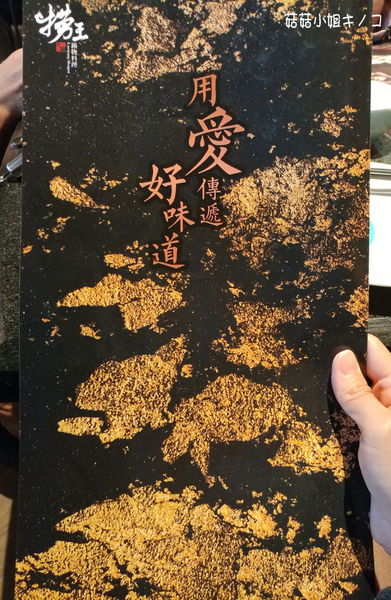 菇菇小姐キノコ
捞王
鍋物料理
用愛傳遞
好味道